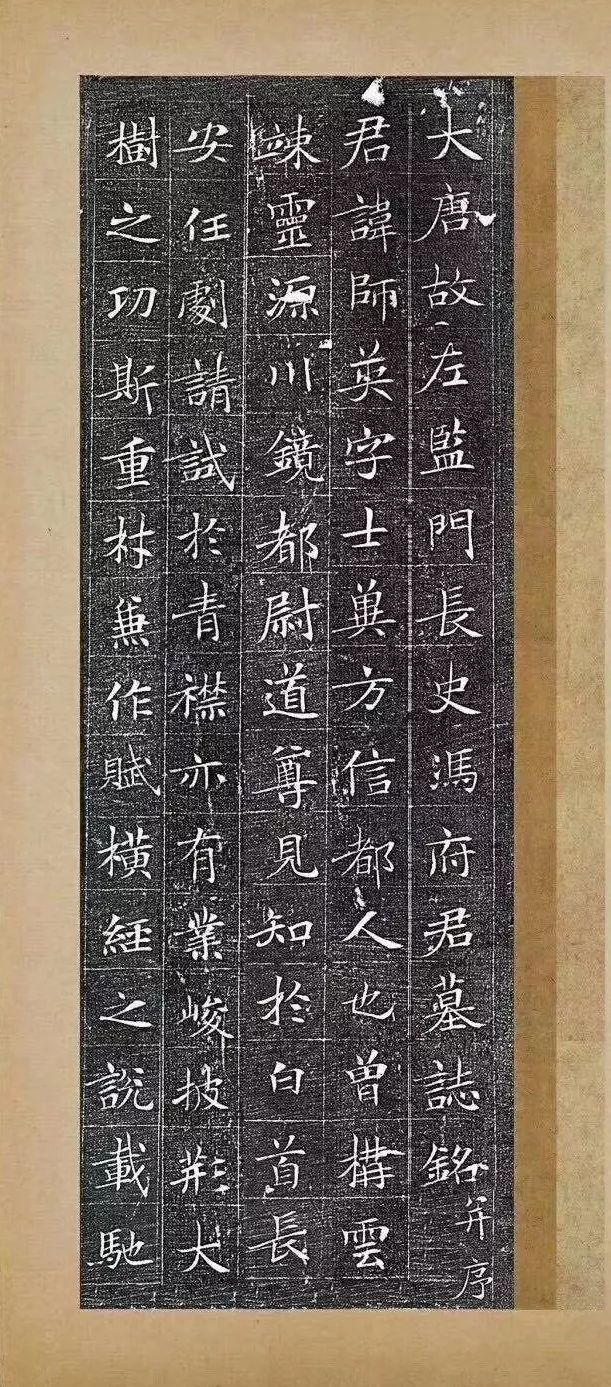 大唐故左監門長史馮府君墓誌銘并序
君諱師英字士兾方信都人也曾構雲
竦靈源川鏡都尉道尊見知於白首長
安任劇請試於青襟亦有業峻披荆大
樹之功斯重材兼作賦橫經之說載馳